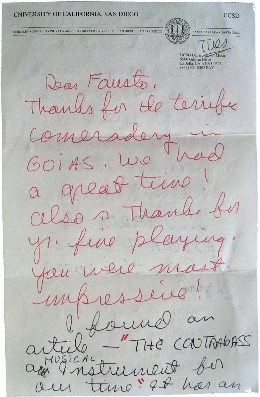 UNIVERSITY OF CALIFORNIA, SAN DIEGO
UCSD
Dear Fausto,
Thanks for the terrific
comeradery in
GOIAS. We had
a great time!
also a thanks for
yr. fine playing.
you were most
impressive!
I found an
article — "THE CONTRABASS
MUSICAL
as Instrument for
our time" It has an